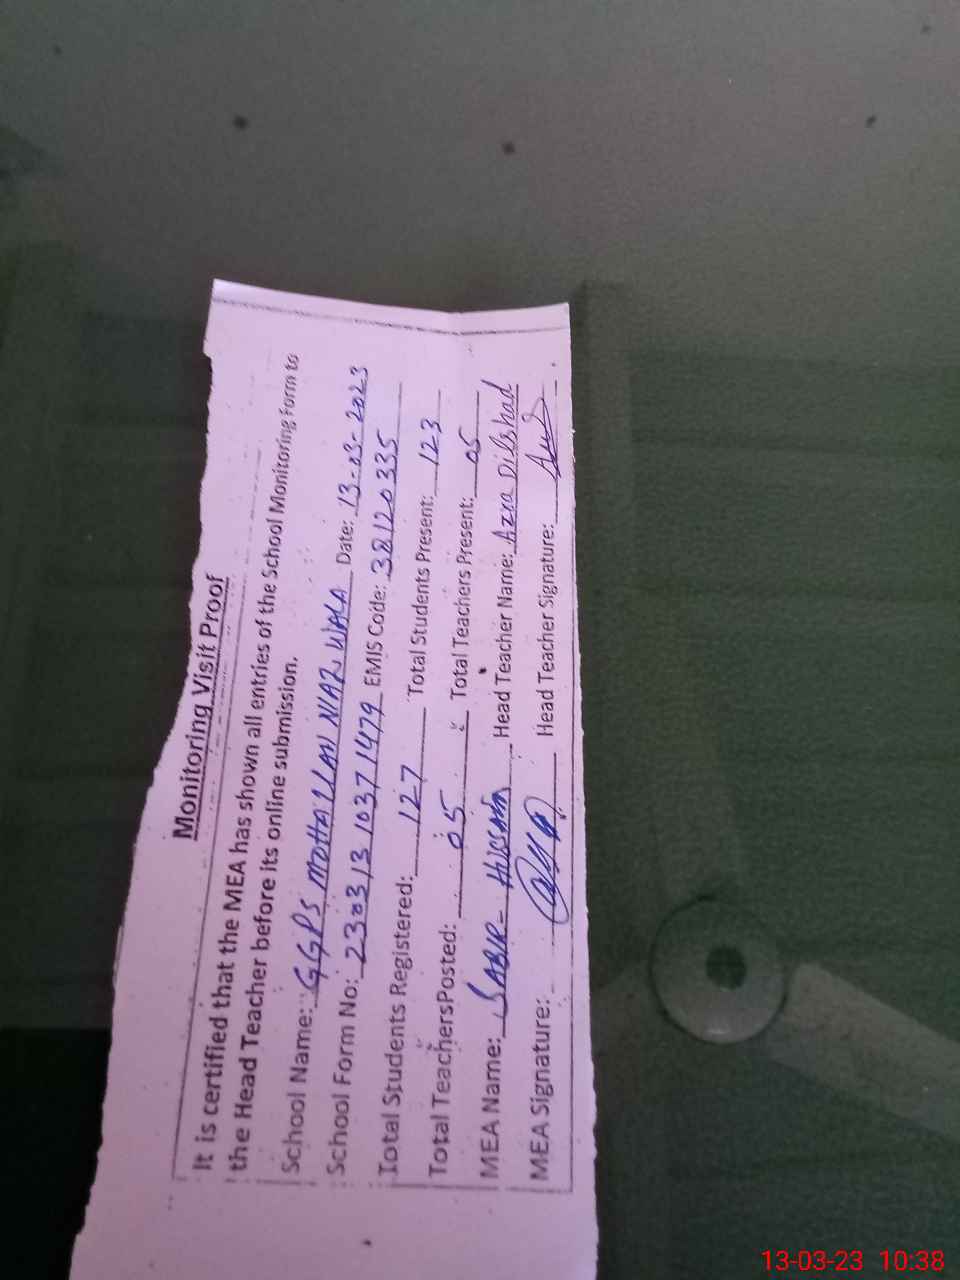 Monitoring Visit Proof
It is certified that the MEA has shown all entries of the School Monitoring Form to
the Head Teacher before its online submission.
School Name: GGPS MOHALLAH NIAZ WALA Date: 13-03-2023
School Form No: 230313 1037 1479 EMIS Code: 38120335
Total Students Registered: 127 Total Students Present: 123
Total TeachersPosted: 05 Total Teachers Present: 05
MEA Name: SABIR Hussain Head Teacher Name: Azra Dilshad
MEA Signature: Head Teacher Signature:
13-03-23 10:38